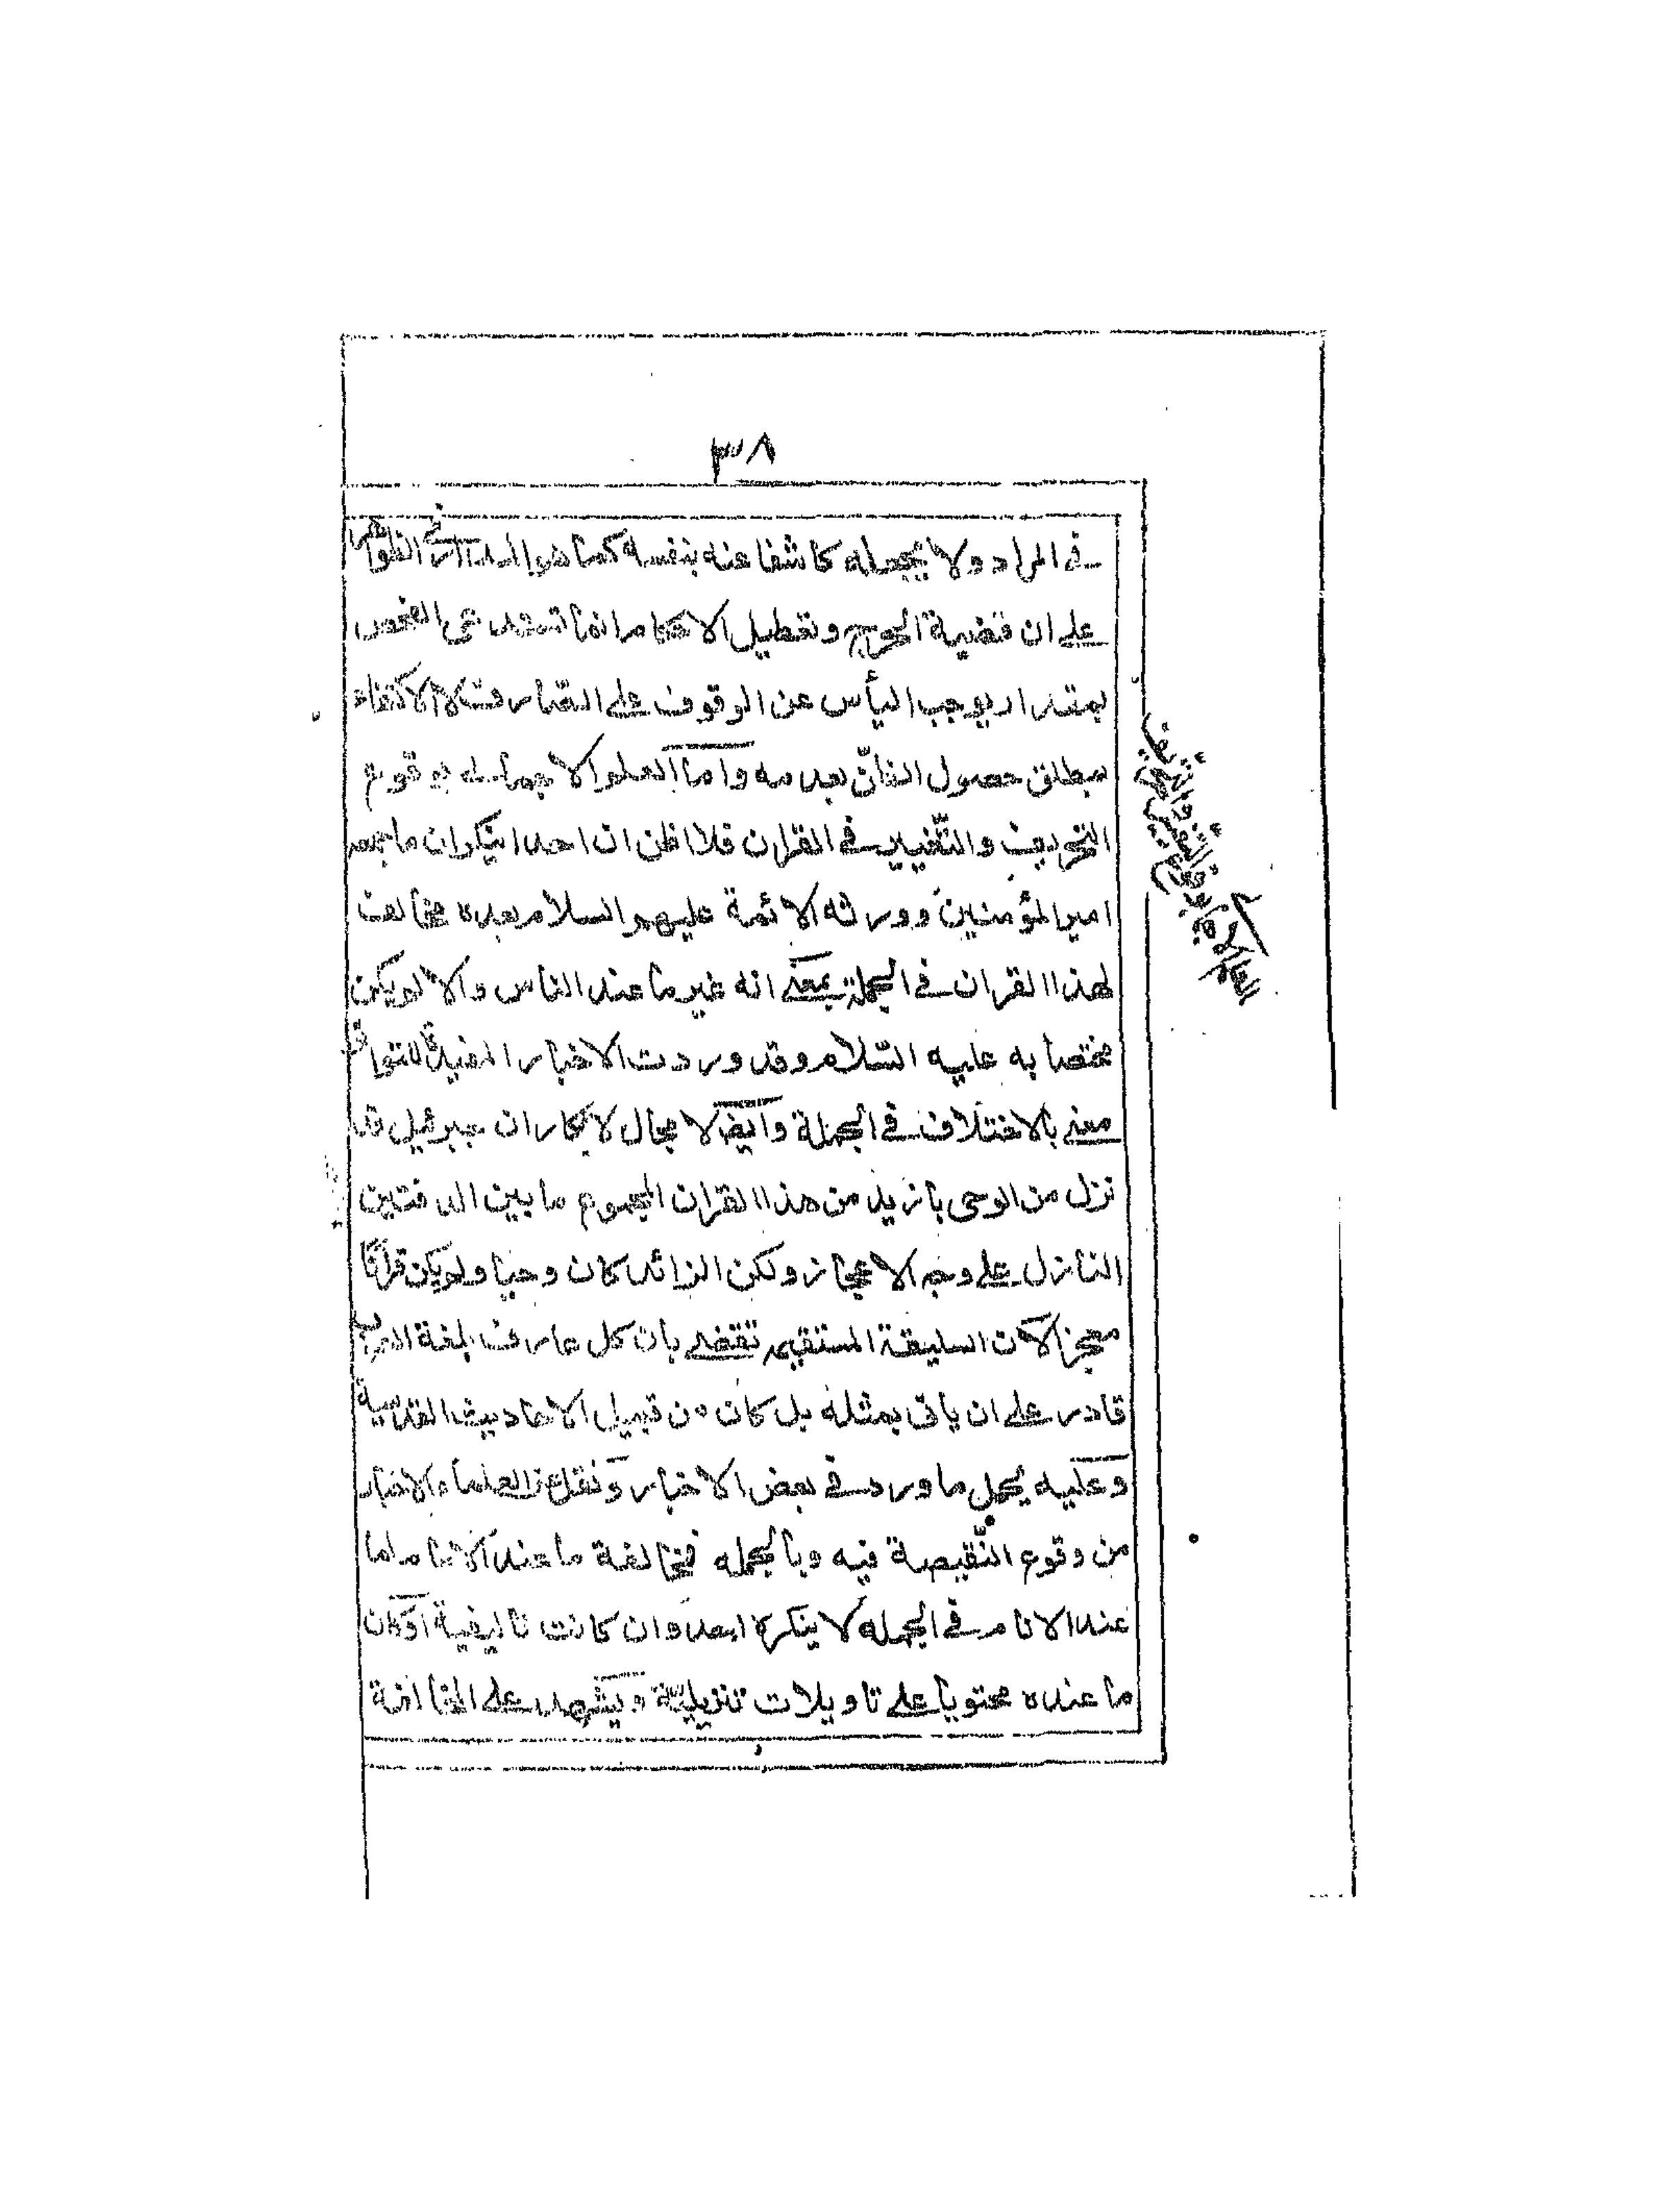 ٣٨
في المراد ولا يجعله كاشفا عنه بنفسه كما هو في الظواهر
على ان قضية الحرج وتعطيل الاحكام انما تستدعى الفحص
بمقدار يوجب اليأس عن الوقوف على الصارف لا الاكتفاء
بمطلق حصول الظنّ بعدمه واما العلم الاجمالى بوقوع
التحريف والتّغيير في القران فلا اظن ان احدا ينكر ان ما جمعه
امير المؤمنين وورثه الائمة عليهم السلام بعده مخالف
لهذا القران في الجملة بمعنى انه غير ما عند الناس والا لم يكن
مختصا به عليه السّلام وقد وردت الاخبار المفيدة للتواتر
معنى بالاختلاف في الجملة وايضا لا مجال لانكار ان جبرئيل قد
نزل من الوحى بازيد من هذا القران المجموع ما بين الدفتين
النازل على وجه الاعجاز ولكن الزائد كان وحيا ولم يكن قرآنا
معجزا لان السليقة المستقيمه تقتضى بان كل عارف بلغة العرب
قادر على ان ياتى بمثله بل كان من قبيل الاحاديث القدسية
وعليه يحمل ما ورد في بعض الاخبار ونقل عن العلماء الاخبار
من وقوع النّقيصة فيه وبالجمله فمخالفة ما عند الامام لما
عند الانام في الجمله لا ينكره احد وان كانت تاليفية او كان
ما عنده محتويا على تاويلات تنزيليّة ويشهد على المخالفة
العلم الاجمالى بوقوع النقص والتحريف